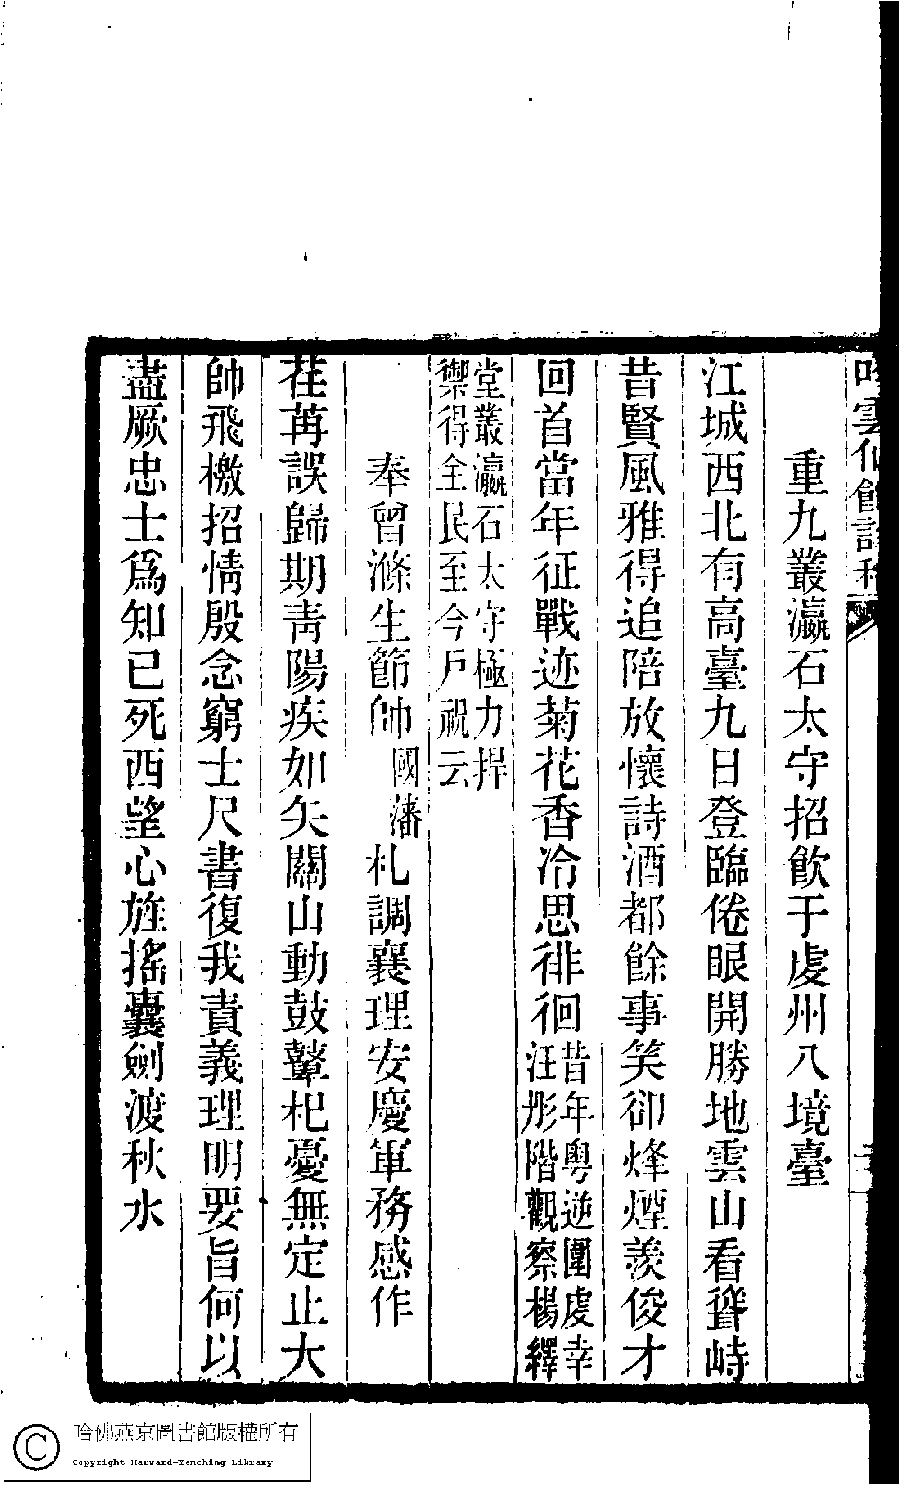 重九叢瀛石太守招飮于虔州八境臺
江城西北有高臺九日登臨倦眼開勝地雲山看聳峙
昔賢風雅得追陪放懷詩酒都餘事笑卻烽煙羨俊才
回首當年征戰迹菊花香冷思徘徊昔年粤逆圍虔幸汪彤階觀察楊繹
堂叢瀛石太守極力捍禦得全民至今戸祝云
奉曾滌生節帥國藩札調襄理安慶軍務感作
荏苒誤歸期靑陽疾如矢關山動鼓鼙杞憂無定止大
帥飛檄招情殷念窮士尺書復我責義理明要旨何以
盡厥忠士爲知已死西望心旌搖囊劍渡秋水
哈佛燕京圖書館版權所有
Copyright Harvard-Yenching Library